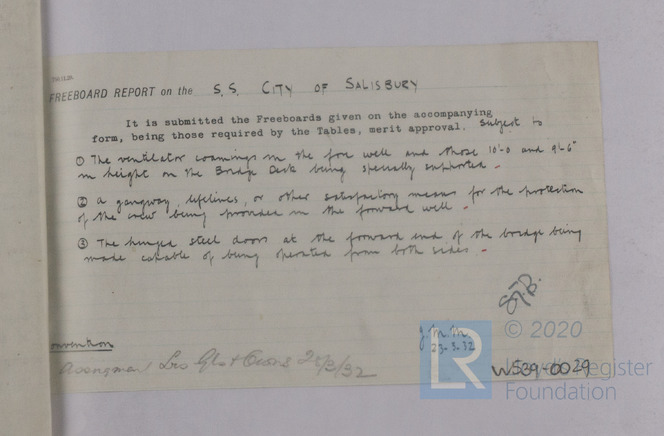 FREEBOARD REPORT on the S.S. CITY OF SALISBURY
It is submitted the Freeboards given on the accompanying
form, being those required by the Tables, merit approval. Subject to
① The ventilator coamings in the fore well and those 10'-0 and 9'-6"
in height on the Bridge Deck being specially supported.
② A gangway, lifelines, or other satisfactory means for the protection
of the crew being provided in the forward well.
③ The hinged steel doors at the forward end of the bridge being
made capable of being operated from both sides.
J.M.M.
23.3.32
onvention
Lrs Gls + Owners 25/3/32
© 2020
LR
Lloyd's Register
Foundation
W539-0029